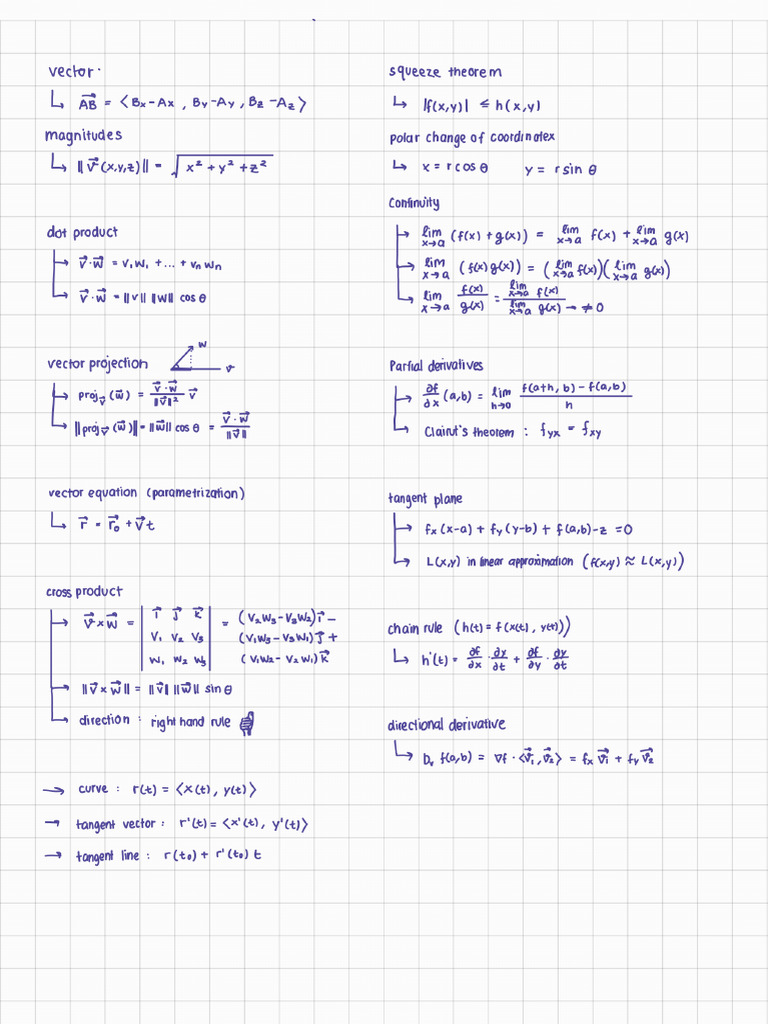 vector:
↳ AB⃗ = ⟨Bx-Ax, By-Ay, Bz-Az⟩
magnitudes
↳ ||v⃗(x,y,z)|| = √(x² + y² + z²)
dot product
→ v⃗·w⃗ = v₁w₁ + ... + vₙwₙ
→ v⃗·w⃗ = ||v|| ||w|| cos θ
vector projection
w
v
→ proj_v⃗ (w⃗) = (v⃗·w⃗)/||v⃗||² v⃗
→ ||proj_v⃗ (w⃗)|| = ||w⃗|| cos θ = (v⃗·w⃗)/||v⃗||
vector equation (parametrization)
↳ r⃗ = r⃗₀ + v⃗t
cross product
→ v⃗ × w⃗ = | i⃗ j⃗ k⃗ | = (v₂w₃-v₃w₂)i⃗ -
| v₁ v₂ v₃ | (v₁w₃-v₃w₁)j⃗ +
| w₁ w₂ w₃ | (v₁w₂-v₂w₁)k⃗
→ ||v⃗ × w⃗|| = ||v⃗|| ||w⃗|| sin θ
→ direction : right hand rule
→ curve : r(t) = ⟨x(t), y(t)⟩
→ tangent vector : r'(t) = ⟨x'(t), y'(t)⟩
→ tangent line : r(t₀) + r'(t₀) t
squeeze theorem
↳ |f(x,y)| ≤ h(x,y)
polar change of coordinatex
↳ x = r cos θ y = r sin θ
Continuity
→ lim x→a (f(x) + g(x)) = lim x→a f(x) + lim x→a g(x)
→ lim x→a (f(x)g(x)) = (lim x→a f(x))(lim x→a g(x))
→ lim x→a f(x)/g(x) = lim x→a f(x) / lim x→a g(x) → ≠ 0
Partial derivatives
→ ∂f/∂x (a,b) = lim h→0 (f(a+h, b) - f(a,b))/h
→ Clairut's theorem : fyx = fxy
tangent plane
→ fx(x-a) + fy(y-b) + f(a,b)-z = 0
→ L(x,y) in linear approximation (f(x,y) ≈ L(x,y))
chain rule (h(t) = f(x(t), y(t)))
↳ h'(t) = ∂f/∂x · ∂y/∂t + ∂f/∂y · ∂y/∂t
directional derivative
↳ Dv f(a,b) = ∇f · ⟨v⃗₁, v⃗₂⟩ = fx v⃗₁ + fy v⃗₂